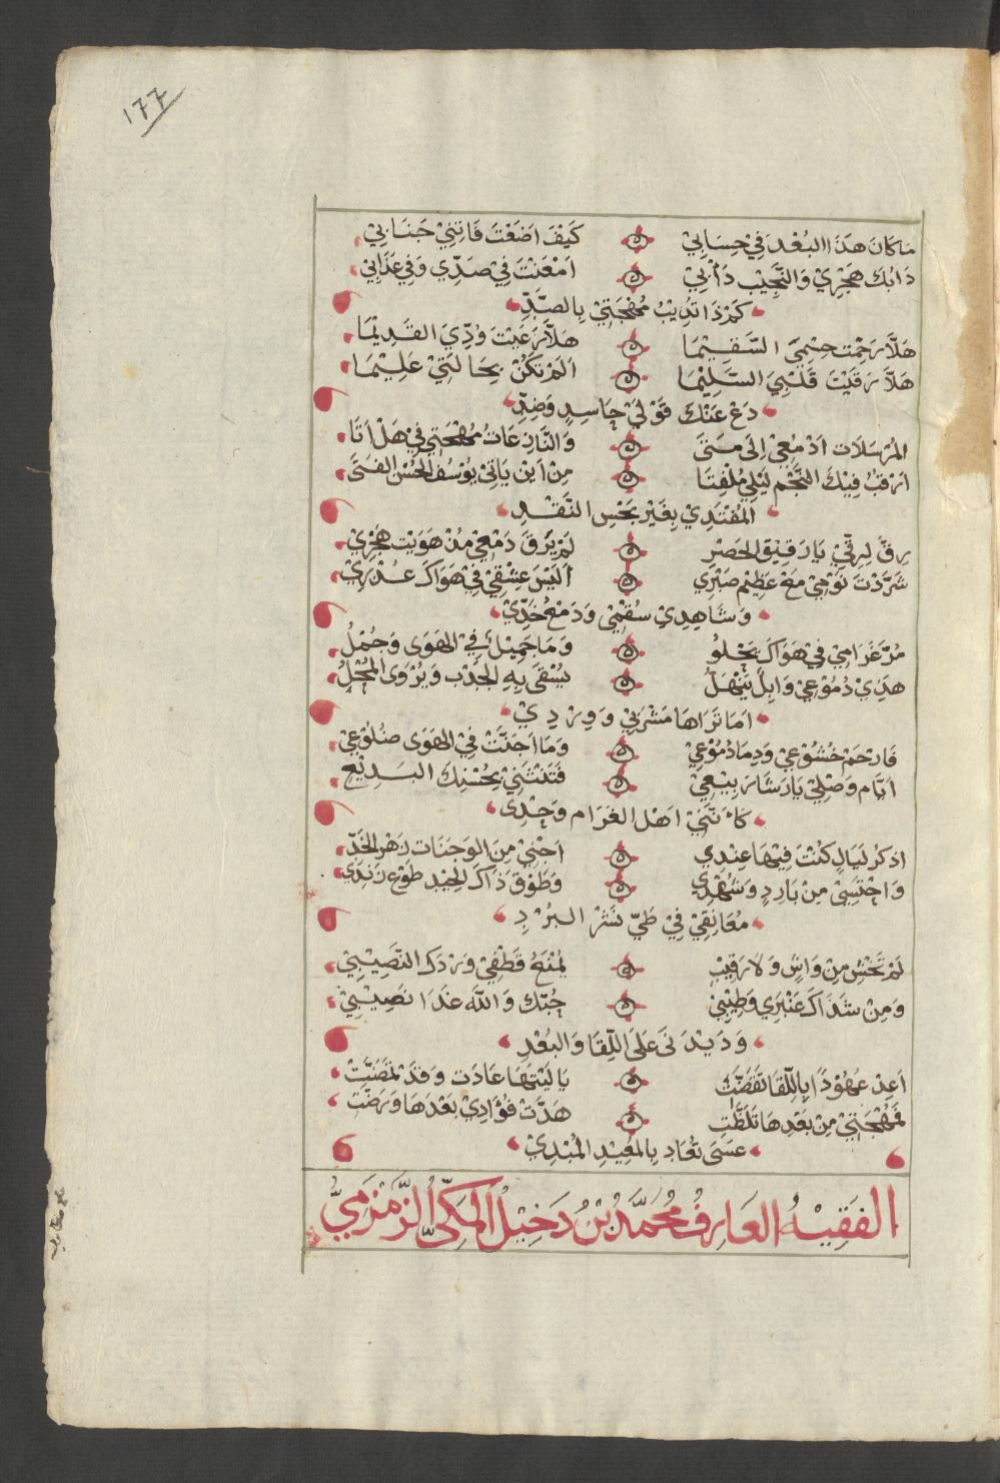 ١٧٧
مَا كَانَ هَذَا البُعْدَ فِي حِسَابِيْ كَيْفَ اَضَعْتَ فَاتِنِيْ جَنَابِيْ
دَابُكَ هَجْرِيْ وَالنَّحِيْبُ دَأْبِيْ اَمْعَنْتَ فِيْ صَدِّي وَفِيْ عَذَابِيْ
كَمْ ذَا تُذِيْبُ مُهْجَتِيْ بِالصَّدِّ
هَلَّا رَحِمْتَ جِسْمِيَ السَّقِيْمَا هَلَّا رَعَيْتَ وُدِّيَ القَدِيْمَا
هَلَّا رَقَيْتَ قَلْبِيَ السَّلِيْمَا اَلَمْ تَكُنْ بِحَالَتِيْ عَلِيْمَا
دَعْ عَنْكَ قَوْلَيْ حَاسِدٍ وَضِدِّ
المُرْسَلَات اَدْمُعِيْ اِلَى مَتَى وَالنَّازِعَاتُ مُهْجَتِي فِيْ هَلْ اَتَا
اَرْقُبُ فِيْكَ النَّجْمَ لَيْلِي مُلْفِتَا مِنْ اَيْنَ يَاتِيْ يُوْسُفُ الحُسْنِ الفَتَى
المُفْتَدِيْ بِغَيْرِ بَخْسِ النَّقْدِ
رِقَّ لِرِقِّيْ يَا رَقِيْقَ الخَصْرِ لَمْ يَرْقَ دَمْعِيْ مُذْ هَوَيْت هَجْرِيْ
شَرَّدْتَ نَوْمِيْ مَعْ عَظِيْمِ صَبْرِي اَلَيْسَ عِشْقِيْ فِيْ هَوَاكَ عُذْرِيْ
وَشَاهِدِيْ سُقْمِيْ وَدَمْعُ خَدِّيْ
مُرُّ غَرَامِيْ فِيْ هَوَاكَ يَحْلُو وَمَا جَمِيْلٌ فِي الهَوَى وَجُمْلُ
هَذِيْ دُمُوْعِيْ وَابِلٌ يَنْهَلُّ يُسْقَى بِهِ الجَدْب وَيُرْوَى المُحْلُ
اَمَا تَرَاهَا مَشْرَبِيْ وَوِرْدِيْ
فَارْحَمْ خُشُوْعِيْ وَدِمَا دُمُوْعِيْ وَمَا اَجَنَّتْ فِيْ الهَوَى ضُلُوْعِيْ
اَيَّام وَصْلِيْ يَا رَشَا رَبِيْعِيْ فَتَنْتَنِيْ بِحُسْنِكَ البَدِيْعِ
كَاَنَّنِيْ اَهْل الغَرَامِ وَحْدِى
اذكرُ لَيَالٍ كُنْتَ فِيْهَا عِنْدِي اَجْنِيْ مِنَ الوَجَنَات زَهْرَ الخَدِّ
وَاحْتَسِيْ مِنْ بَارِدٍ وَشُهْدِي وَطَوْقُ ذَاكَ الجِيْدِ طَوْع زَنْدِى
مُعَانِقِيْ فِيْ طَيِّ نَشْرِ البُرْدِ
لَمْ تَخْشَ مِنْ وَاشٍ وَلَا رَقِيْبِ يُمْنَعُ قَطْفِيْ وَرْدَكَ النَّصِيْبِيْ
وَمِنْ شَذَاكَ عَنْبَرِي وَطِيْبِيْ حُبُّكَ وَاللَّهِ غَدَا نَصِيْبِيْ
وَدَيْدَنِى عَلَى اللِّقَا وَالبُعْدِ
اَعِدْ عُهُوْدًا بِاللِّقَا تَقَضَّتْ يَا لَيْتَهَا عَادَت وَقَدْ تَقَضَّتْ
فَمُهْجَتِيْ مِنْ بَعْدِهَا تَلَظَّتِ هَدَّتْ فُؤَادِيْ بَعْدَهَا وَرَضَّت
عَسَى تُعَاد بِالمُعِيْدِ المُبْدِيْ
الفَقِيْهُ العَارِفُ مُحَمَّدُ بْنُ دَخِيْلُ المَكِّيُّ الزَّمْزَمِيُّ